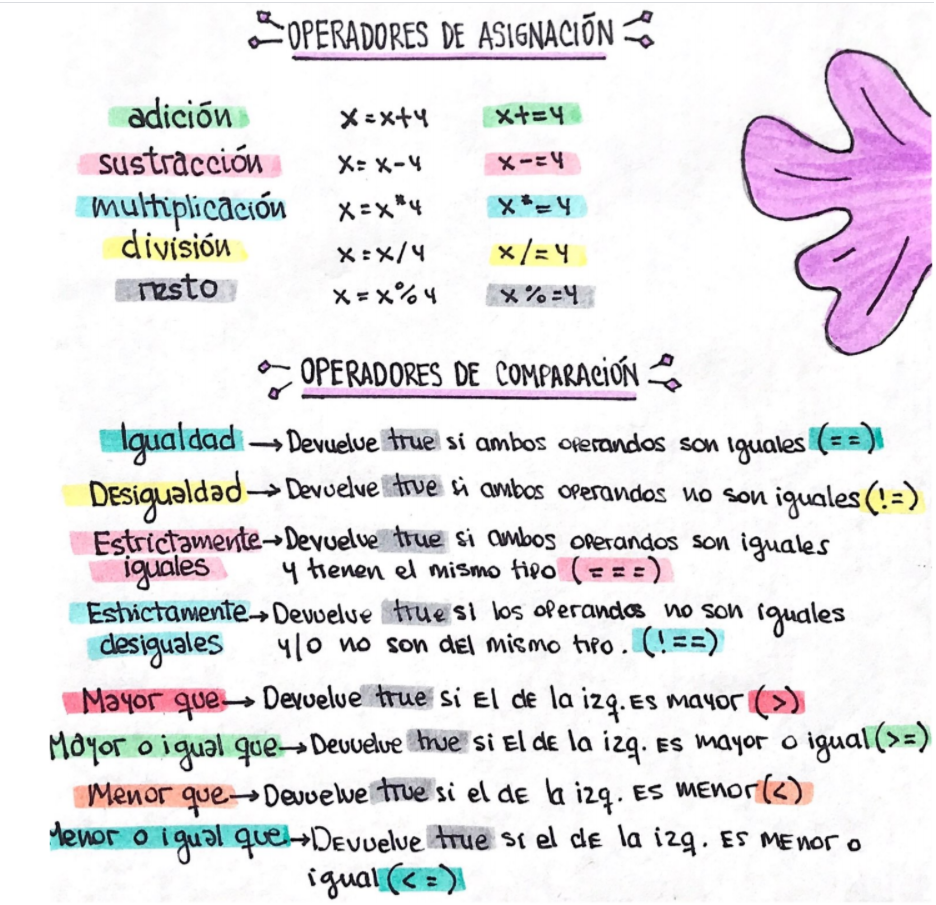 OPERADORES DE ASIGNACIÓN
adición x=x+y x+=y
sustracción x=x-y x-=y
multiplicación x=x*y x*=y
división x=x/y x/=y
resto x=x%y x%=y
OPERADORES DE COMPARACIÓN
Igualdad → Devuelve true si ambos operandos son iguales (==)
Desigualdad → Devuelve true si ambos operandos no son iguales (!=)
Estrictamente → Devuelve true si ambos operandos son iguales
iguales y tienen el mismo tipo (===)
Estrictamente → Devuelve true si los operandos no son iguales
desiguales y/o no son del mismo tipo. (!==)
Mayor que → Devuelve true si el de la izq. es mayor (>)
Mayor o igual que → Devuelve true si el de la izq. es mayor o igual (>=)
Menor que → Devuelve true si el de la izq. es menor (<)
Menor o igual que → Devuelve true si el de la izq. es menor o
igual (<=)